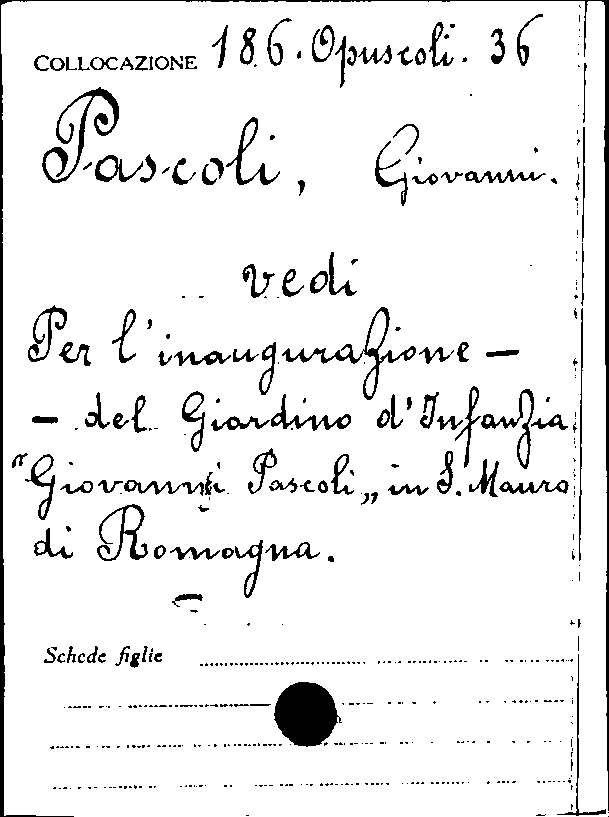 COLLOCAZIONE 186. Opuscoli. 36
Pascoli, Giovanni.
vedi
Per l'inaugurazione —
— del Giardino d'Infanzia
"Giovanni Pascoli„ in S. Mauro
di Romagna.
Schede figlie